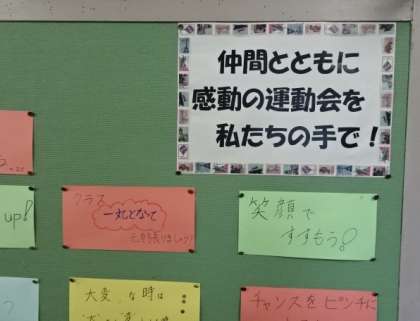 仲間とともに
感動の運動会を
私たちの手で！
up!
クラス
一丸となって
笑顔で
すすもう!
大変な時は
チャンスをピンチに